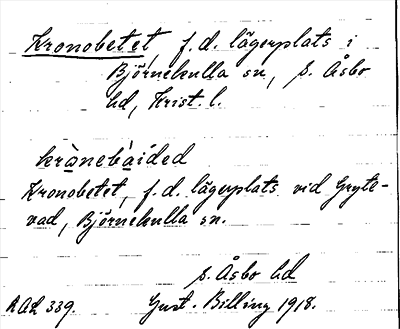 Kronobetet, f.d. lägerplats i
Björnekulla sn, S. Åsbo
hd, Krist. l.
krànebàided
Kronobetet, f.d. lägerplats vid Gryte-
vad, Björnekulla sn.
S. Åsbo hd
AAL 339. Gust. Billing 1918.